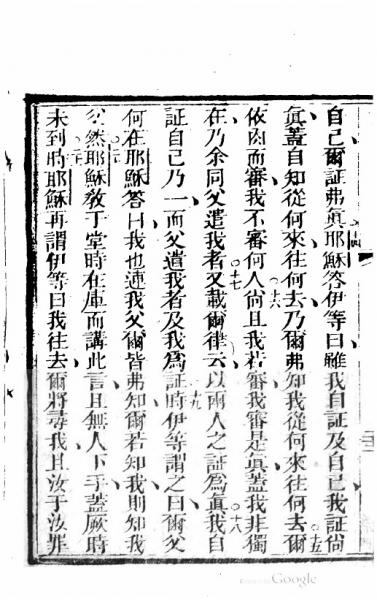 自己爾証弗眞耶穌答伊等曰雖我自証及自己我証尙
眞蓋自知從何來往何去乃爾弗知我從何來往何去爾
依肉而審我不審何人尙且我若審我審是眞蓋我非獨
在乃余同父遣我者又載爾律云以兩人之証爲眞我自
証自己乃一而父遣我者及我爲証時伊等謂之曰爾父
何在耶穌答曰我也連我父爾皆弗知爾若知我則知我
父然耶穌敎于堂時在庫而講此言且無人下手蓋厥時
未到時耶穌再謂伊等曰我往去爾將尋我且汝于汝罪
十四
十五
十六
十七
十八
十九
二十
Google